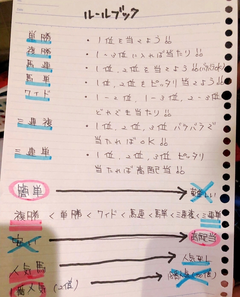 ルールブック
単勝 ・1位を当てよう品
複勝 ・1〜3位に入れば当たり品
馬連 ・1位、2位を当てよう品
馬単 ・1位、2位をピッタリ当てよう品
ワイド ・1-2位、1-3位、2-3位
どれでも当たり
三連複 ・1位、2位、3位 バラバラで
当たればOK品
三連単 ・1位、2位、3位 ピッタリ
当たれば高配当品
簡単 → 難しい
複勝 < 単勝 < ワイド < 馬連 < 馬単 < 三連複 < 三連単
高配当
人気馬 人気なし